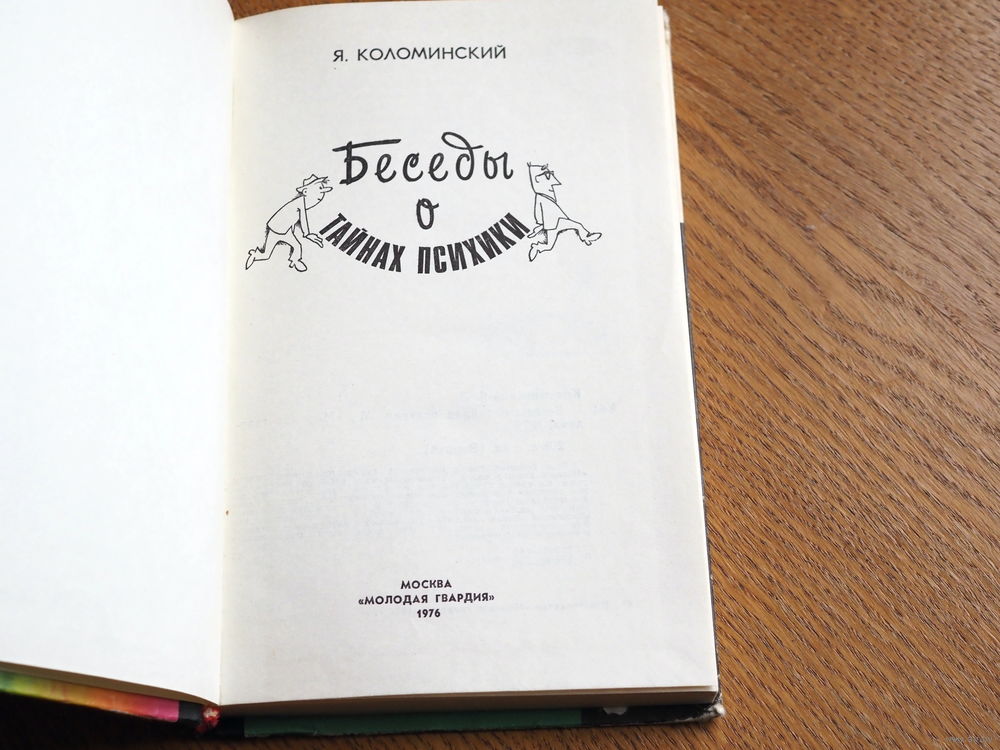 Я. КОЛОМИНСКИЙ
Беседы
о
ТАЙНАХ ПСИХИКИ
МОСКВА
«МОЛОДАЯ ГВАРДИЯ»
1976